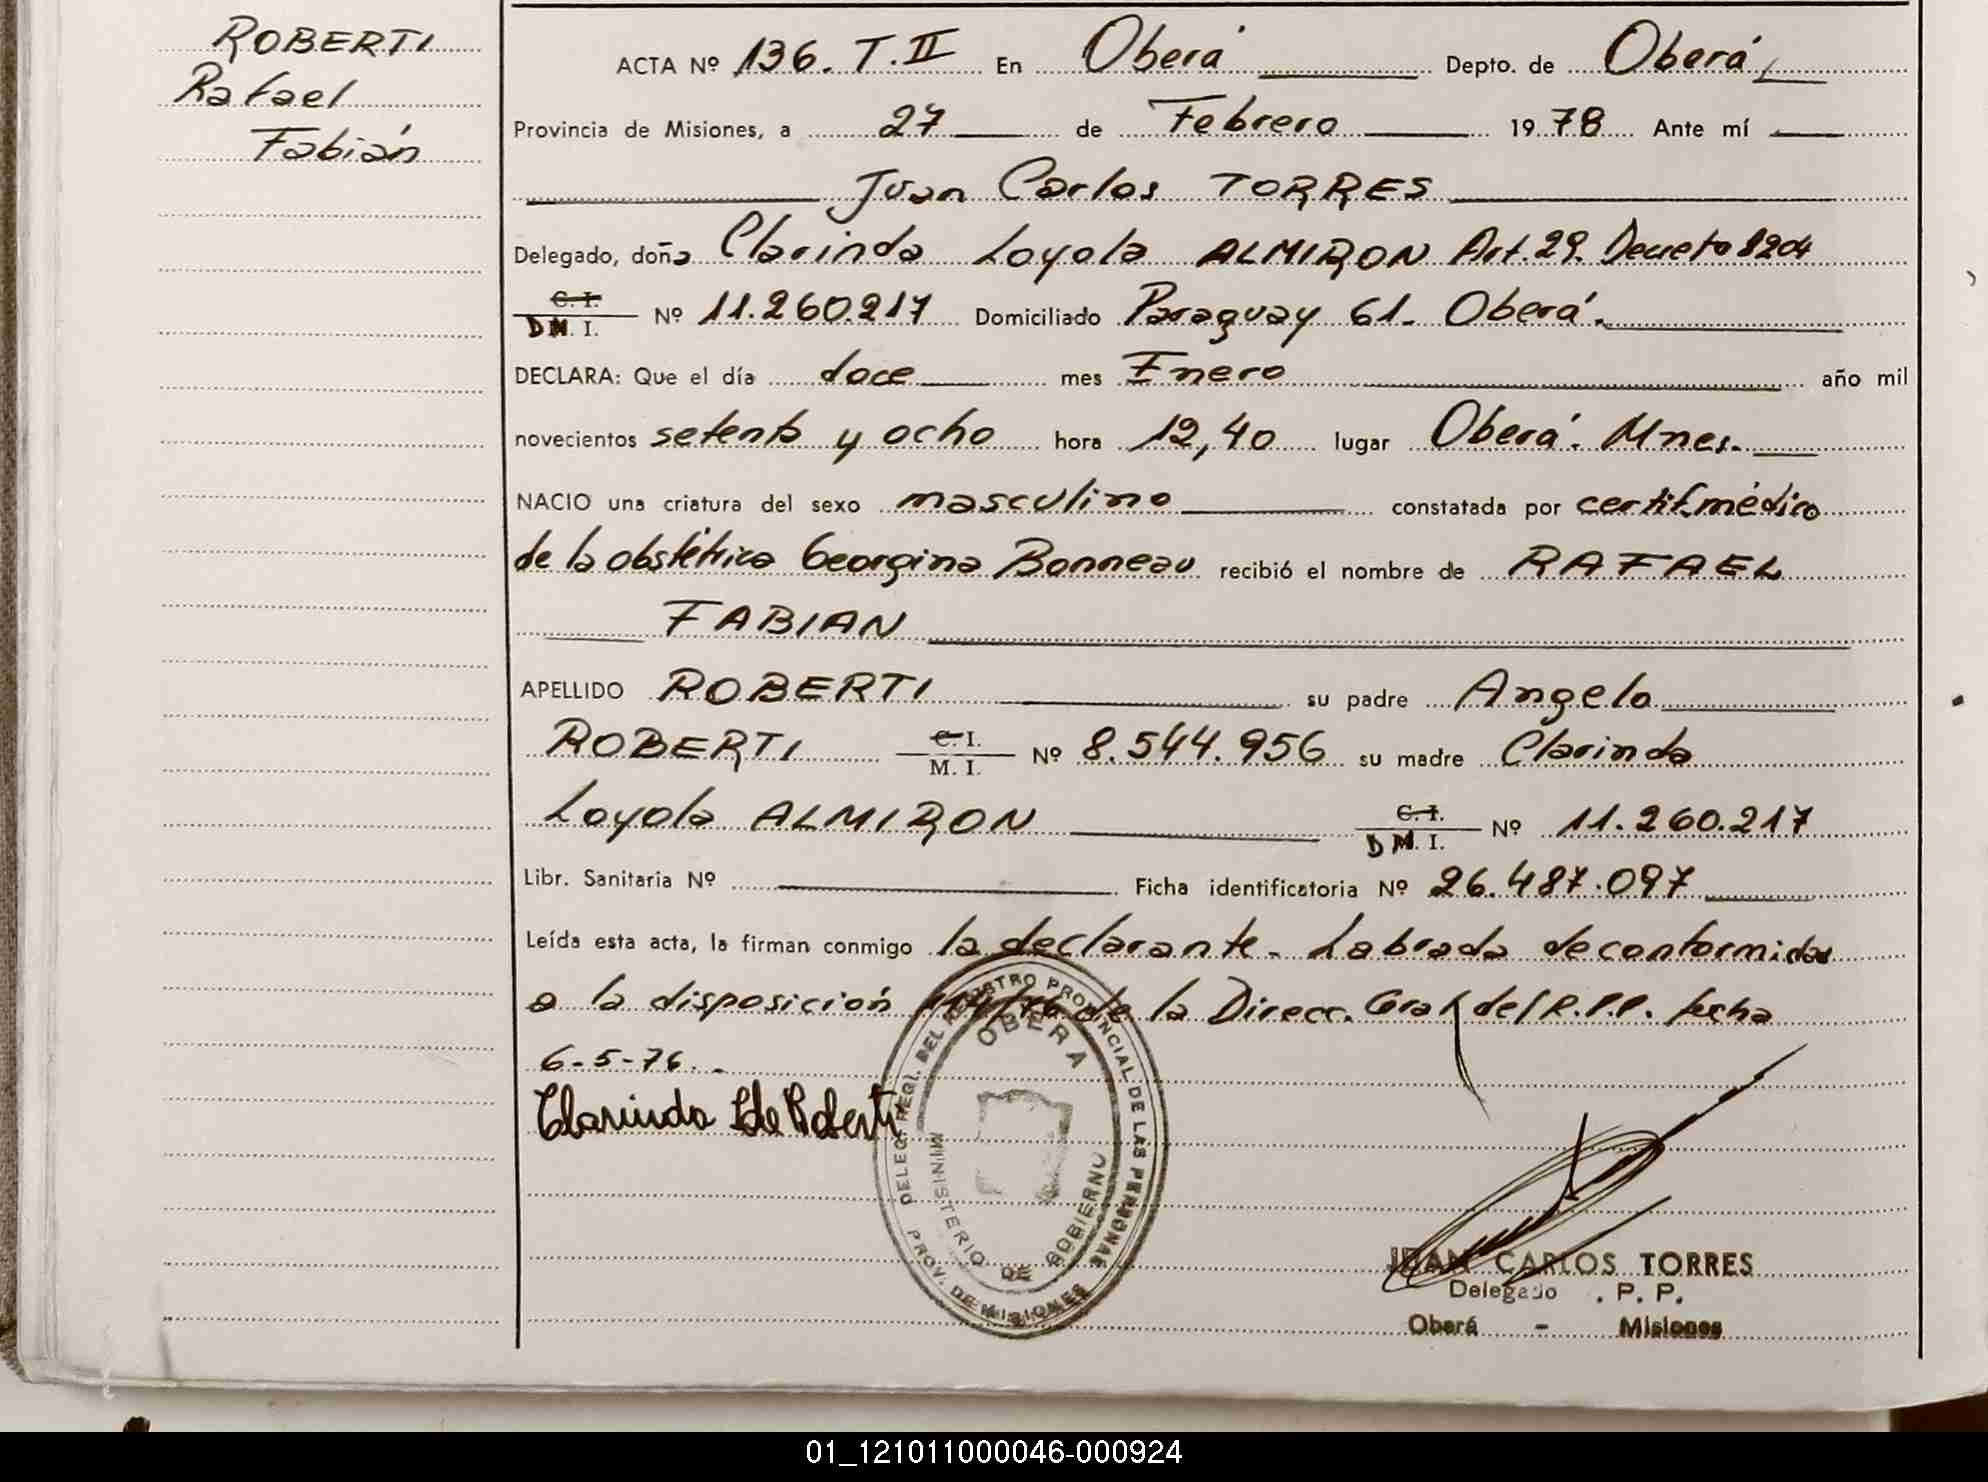 ROBERTI
Rafael
Fabián
ACTA Nº 136. T. II En Oberá Depto. de Oberá
Provincia de Misiones, a 27 de Febrero 1978 Ante mí
Juan Carlos TORRES
Delegado, doña Clarinda Loyola ALMIRON Art. 29. Decreto 8204
C. I.
DM. I. Nº 11.260.217 Domiciliado Paraguay 61. Oberá.
DECLARA: Que el día doce mes Enero año mil
novecientos setenta y ocho hora 12,40 lugar Oberá. Mnes.
NACIO una criatura del sexo masculino constatada por certif. médico
de la obstétrica Georgina Bonneau recibió el nombre de RAFAEL
FABIAN
APELLIDO ROBERTI su padre Angelo
ROBERTI C. I. M. I. Nº 8.544.956 su madre Clarinda
Loyola ALMIRON C. I. DM. I. Nº 11.260.217
Libr. Sanitaria Nº Ficha identificatoria Nº 26.487.097
Leída esta acta, la firman conmigo la declarante. Labrada de conformidad
a la disposición de la Direcc. Gral del R.P.P. fecha
6-5-76.
Clarinda de Roberti
DELEG. REGL. DEL REGISTRO PROVINCIAL DE LAS PERSONAS
OBERA
MINISTERIO DE GOBIERNO
PROV. DE MISIONES
JUAN CARLOS TORRES
Delegado . P. P.
Oberá - Misiones
01_121011000046-000924